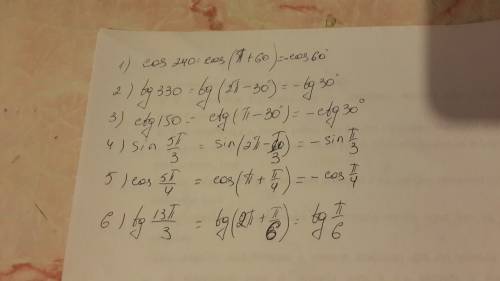 1) cos 240 = cos(π+60) = -cos 60°
2) tg 330 = tg(2π-30°) = -tg 30°
3) ctg 150 = ctg(π-30°) = -ctg 30°
4) sin 5π/3 = sin(2π-π/3) = -sin π/3
5) cos 5π/4 = cos(π+π/4) = -cos π/4
6) tg 13π/3 = tg(2π+π/6) = tg π/6